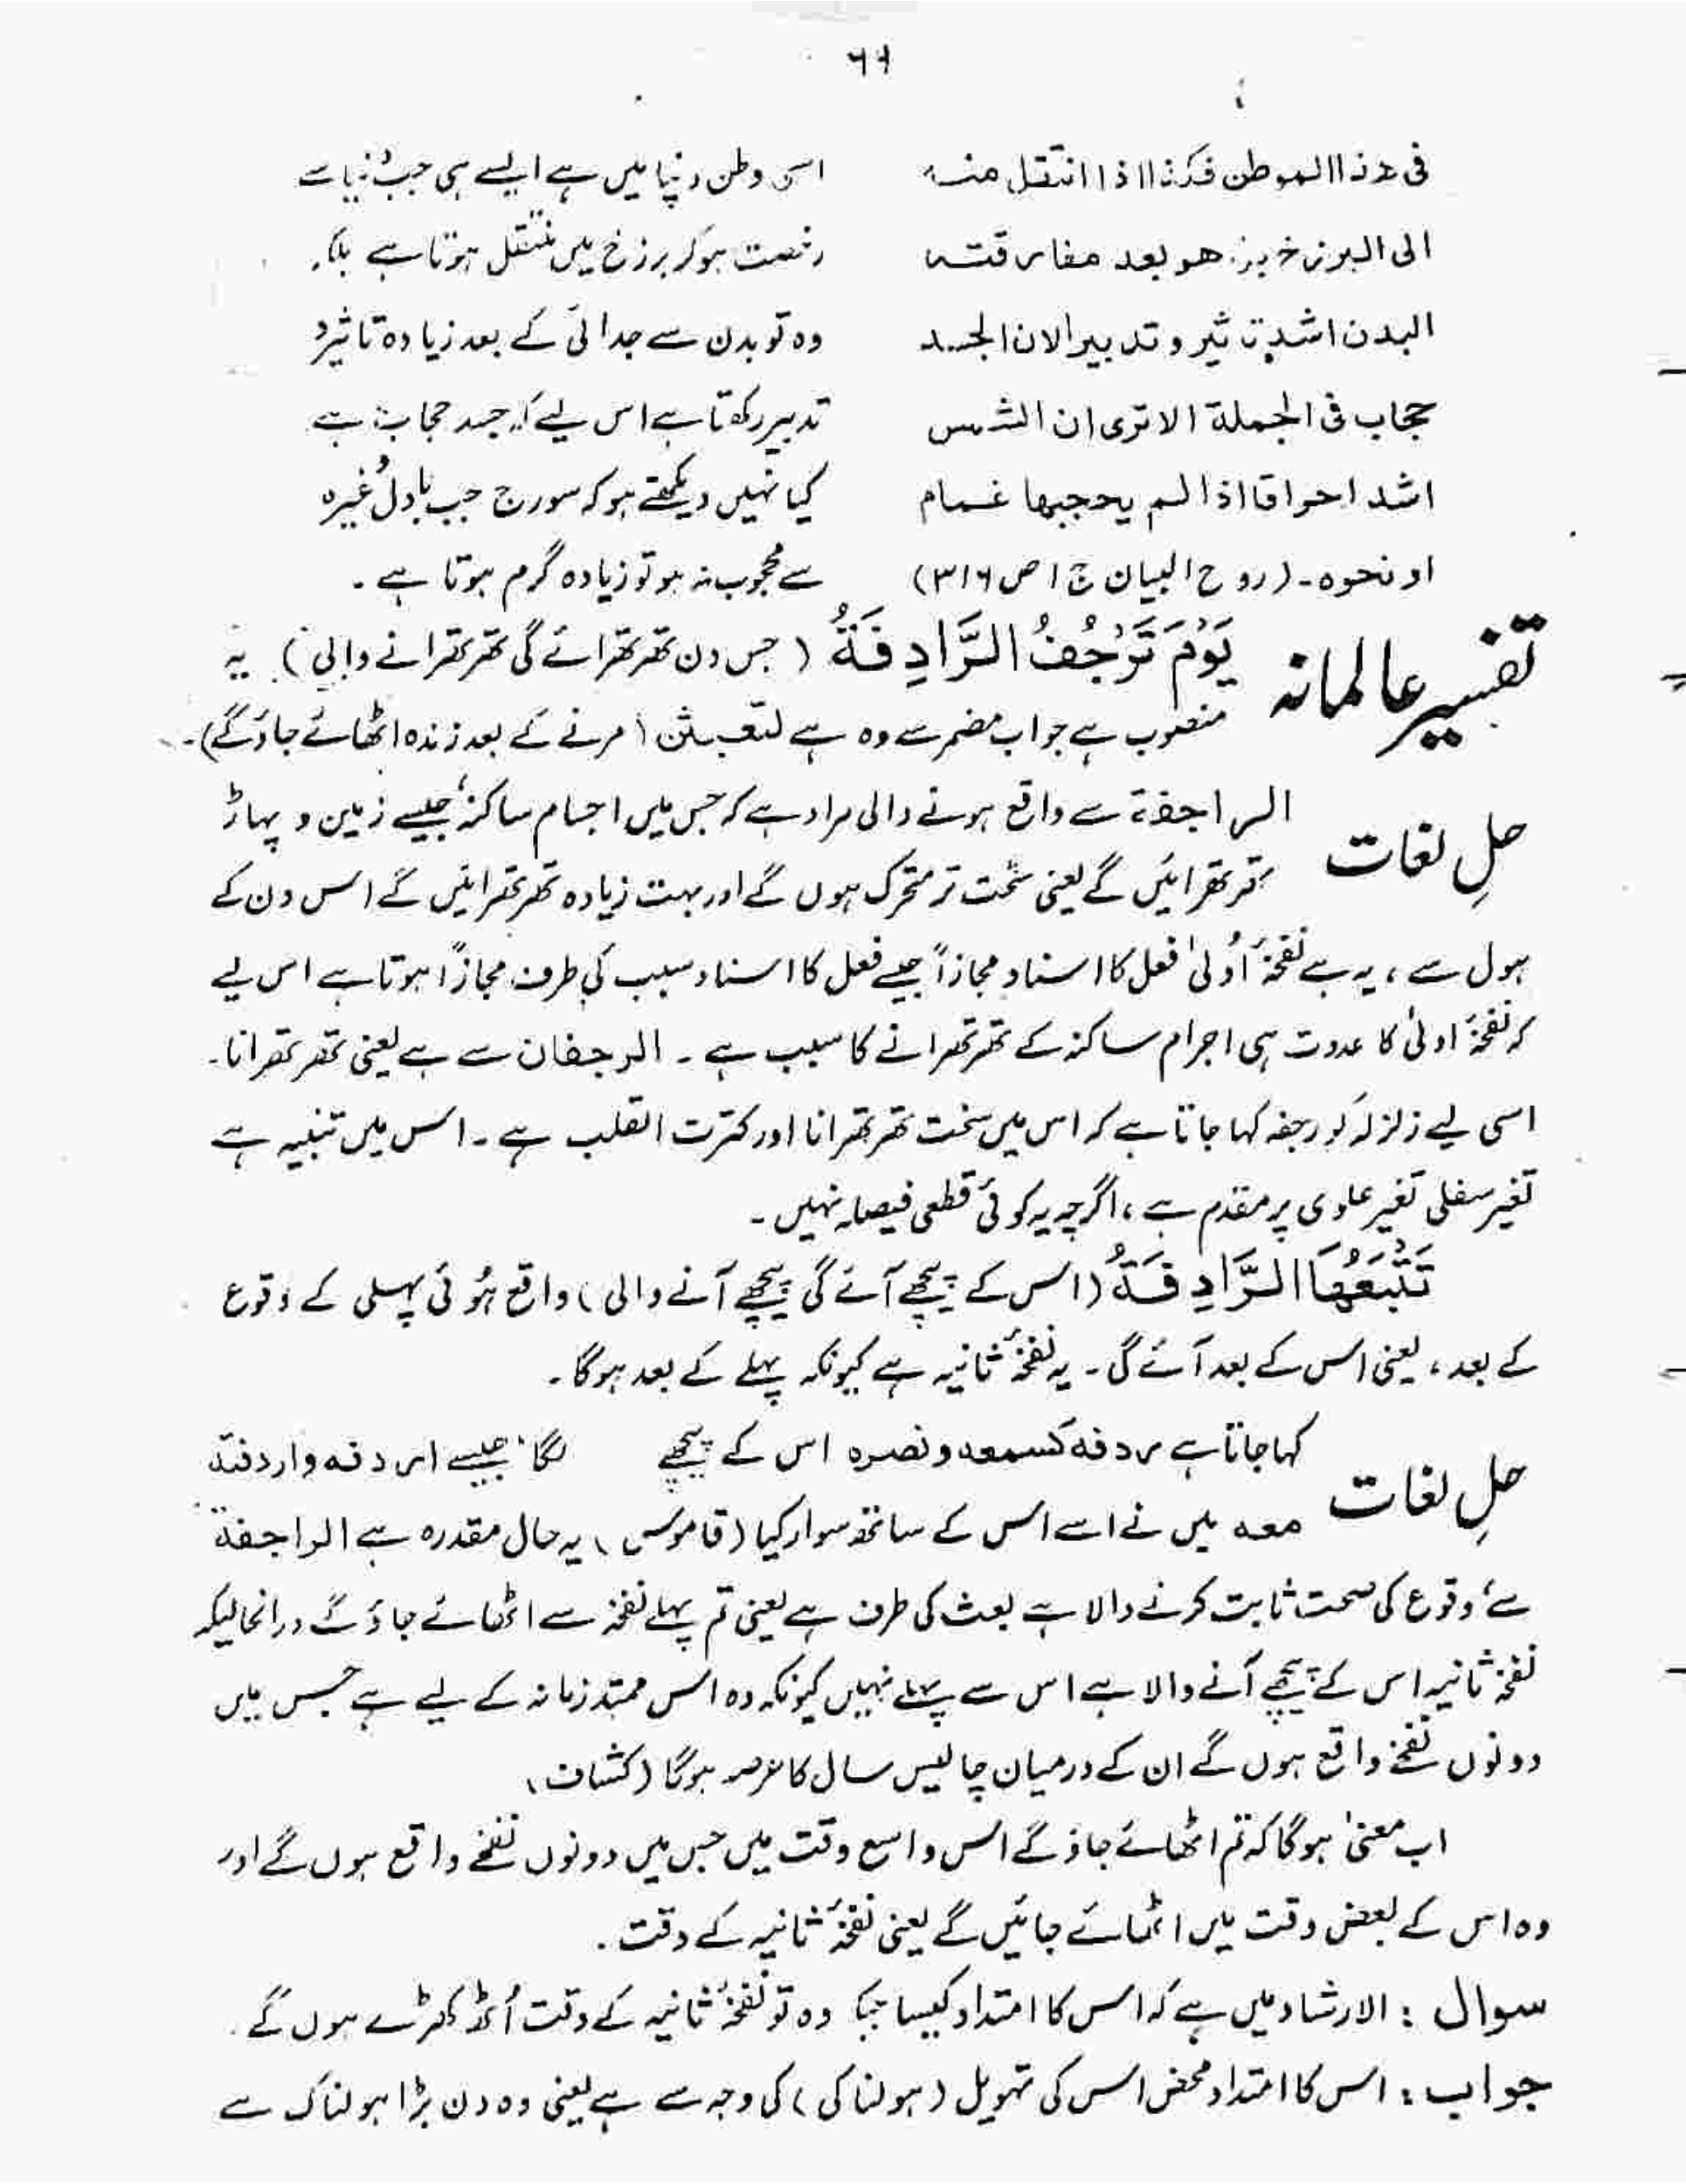 ۶۶
فی هذا الموطن فکذا اذا انتقل منه
الی البرزخ بل هو بعد مفارقته
البدن اشد تاثیر و تدبیرا لان الجسد
حجاب فی الجملة الا تری ان الشمس
اشد احراقا اذا لم یحجبها غمام
او نحوه۔ (روح البیان ج ۱ ص ۳۱۶)
اسی وطن دنیا میں ہے ایسے ہی جب دنیا سے
رخصت ہو کر برزخ میں منتقل ہوتا ہے بلکہ
وہ تو بدن سے جدائی کے بعد زیادہ تاثیر و
تدبیر رکھتا ہے اس لیے کہ جسد حجاب ہے
کیا نہیں دیکھتے ہو کہ سورج جب بادل وغیرہ
سے محجوب نہ ہو تو زیادہ گرم ہوتا ہے ۔
تفسیر عالمانہ
یَوْمَ تَرْجُفُ الرَّادِفَةُ (جس دن تھرتھرائے گی تھرتھرانے والی) یہ
منصوب ہے جواب مضمر سے وہ ہے لتبعثن (مرنے کے بعد زندہ اٹھائے جاؤ گے)۔
حلِ لغات
الراجفة سے واقع ہونے والی مراد ہے کہ جس میں اجسام ساکنہ جیسے زمین و پہاڑ
تھرتھرائیں گے یعنی سخت تر متحرک ہوں گے اور بہت زیادہ تھرتھرائیں گے اس دن کے
ہول سے ، یہ ہے نفخۂ اُولیٰ فعل کا اسناد مجازاً جیسے فعل کا اسناد سبب کی طرف مجازاً ہوتا ہے اس لیے
کہ نفخۂ اولیٰ کا حدوث ہی اجرام ساکنہ کے تھرتھرانے کا سبب ہے ۔ الرجفان سے ہے یعنی تھرتھرانا۔
اسی لیے زلزلہ کو رجفہ کہا جاتا ہے کہ اس میں سخت تھرتھرانا اور کثرت القلب ہے ۔ اس میں تنبیہ ہے
تغیر سفلی تغیر علوی پر مقدم ہے ، اگرچہ یہ کوئی قطعی فیصلہ نہیں ۔
تَتْبَعُهَا الرَّادِفَةُ (اس کے پیچھے آئے گی پیچھے آنے والی) واقع ہوئی پہلی کے وقوع
کے بعد ، یعنی اس کے بعد آئے گی ۔ یہ نفخۂ ثانیہ ہے کیونکہ پہلے کے بعد ہوگا ۔
حلِ لغات
کہا جاتا ہے ردفه کسمعه و نصره اس کے پیچھے لگا جیسے اردفه و اردفته
معه میں نے اسے اس کے ساتھ سوار کیا (قاموس) یہ حال مقدرہ ہے الراجفة
سے وقوع کی صحت ثابت کرنے والا ہے بعث کی طرف ہے یعنی تم پہلے نفخہ سے اٹھائے جاؤ گے درانحالیکہ
نفخۂ ثانیہ اس کے پیچھے آنے والا ہے اس سے پہلے نہیں کیونکہ وہ اس ممتد زمانہ کے لیے ہے جس میں
دونوں نفخے واقع ہوں گے ان کے درمیان چالیس سال کا عرصہ ہوگا (کشاف)
اب معنیٰ ہوگا کہ تم اٹھائے جاؤ گے اس واسع وقت میں جس میں دونوں نفخے واقع ہوں گے اور
وہ اس کے بعض وقت میں اٹھائے جائیں گے یعنی نفخۂ ثانیہ کے وقت ۔
سوال : الارشاد میں ہے کہ اس کا امتداد کیسا جبکہ وہ تو نفخۂ ثانیہ کے وقت اُٹھ کھڑے ہوں گے ۔
جواب : اس کا امتداد محض اس کی تہویل (ہولناکی) کی وجہ سے ہے یعنی وہ دن بڑا ہولناک ہے